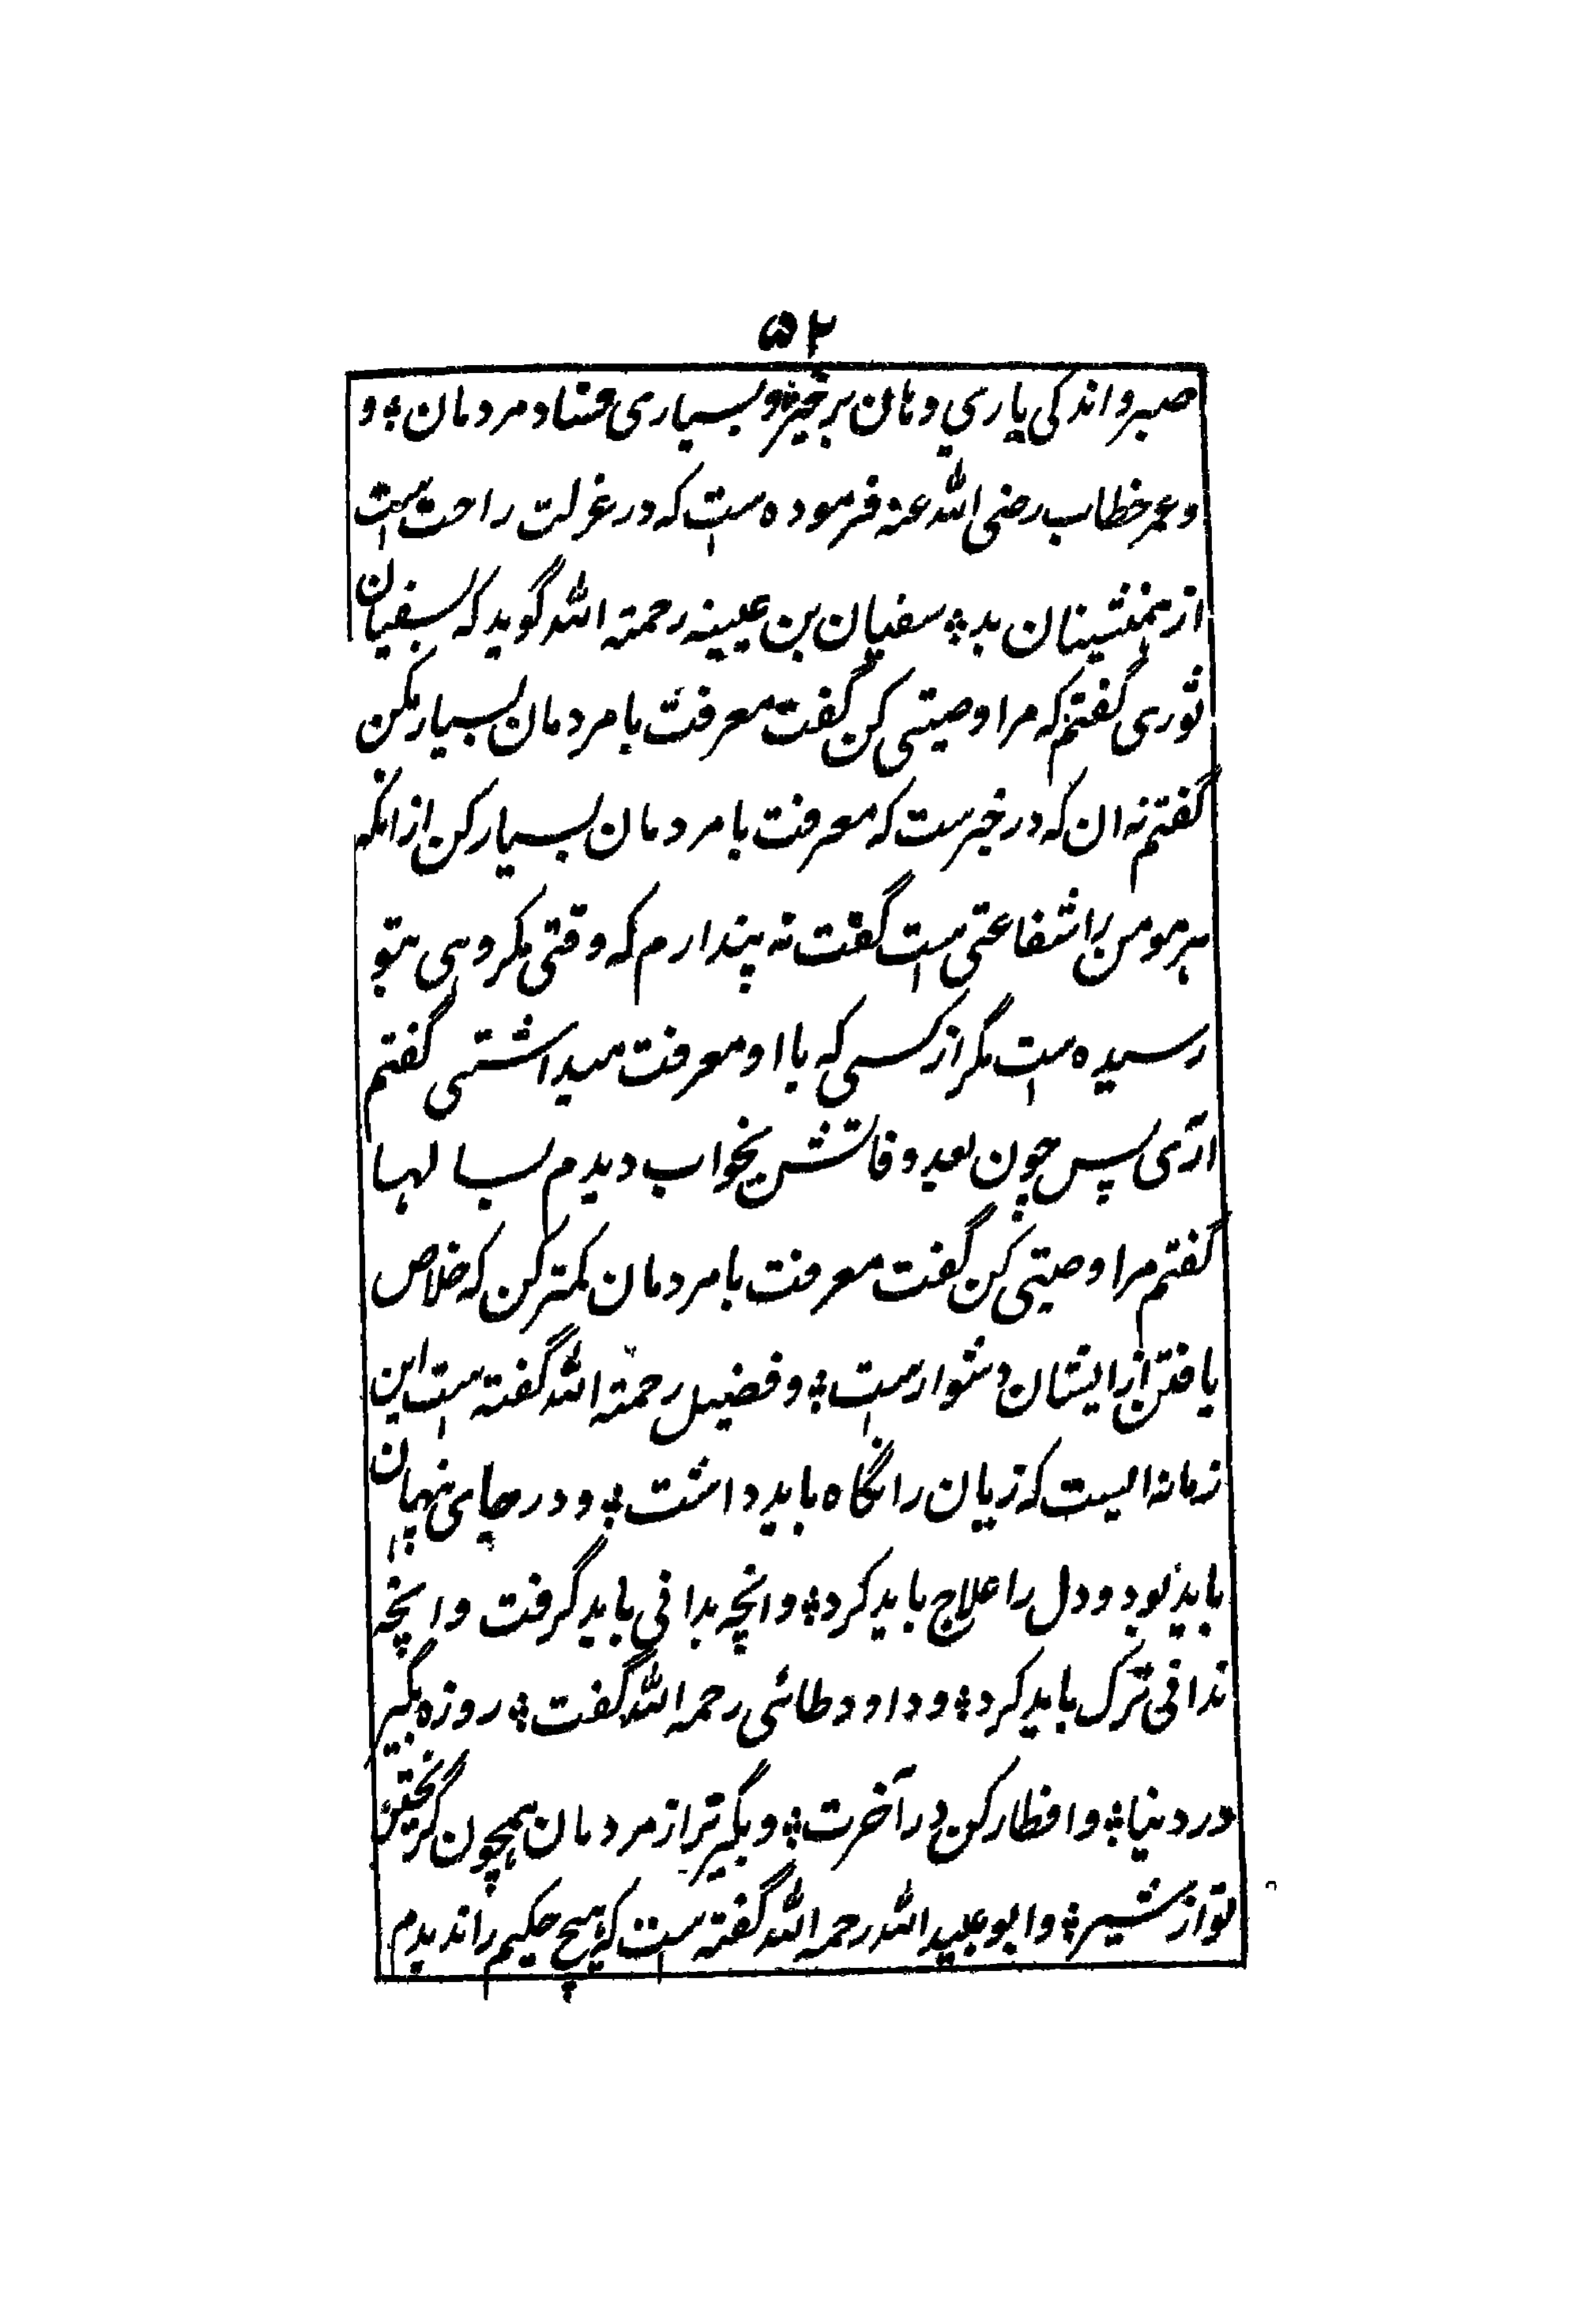 ۵۲
صبر و اندکی یاری دهان بر خیر؞ و بسیاری فساد مردمان؞ و
و عمر خطاب رضی الله عنه فرموده است که در عزلت راحت است
از همنشینان بد؞ سفیان بن عیینه رحمته الله گوید که بسفیان
ثوری گفتم که مرا وصیتی کن گفت معرفت با مردمان بسیار مکن
گفتم نه ان که در خبرست که معرفت با مردمان بسیار کن از انکه
هر مومن را شفاعتی است گفت نه پندارم که وقتی مکروهی بتو
رسیده است مگر از کسی که با او معرفت میداشتی گفتم
آری پس چون بعد وفاتش بخواب دیدم بسالها
گفتم مرا وصیتی کن گفت معرفت با مردمان کمتر کن که خلاص
یافتن از ایشان دشوار است؞ و فضیل رحمته الله گفته است این
زمانه ایست که زبان را نگاه باید داشت؞ و در جای پنهان
باید بود و دل را علاج باید کرد؞ و انچه بدانی باید گرفت و انچه
ندانی ترک باید کرد؞ و داود طائی رحمه الله گفت؞ روزه بگیر
در دنیا؞ و افطار کن در آخرت؞ و بگریز از مردمان همچون گریختن
تو از شیر؞ و ابو عبید الله رحمه الله گفته است که هیچ حکیم را ندیدم